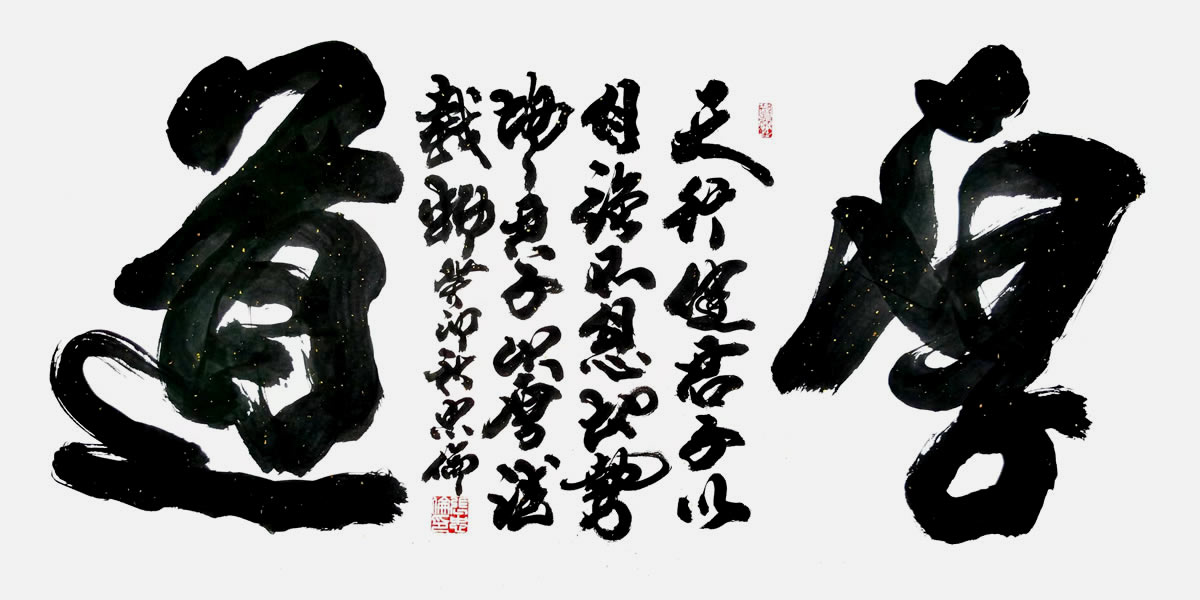 厚
天行健君子以
自強不息地勢
坤君子以厚德
載物癸卯秋忠倫
道